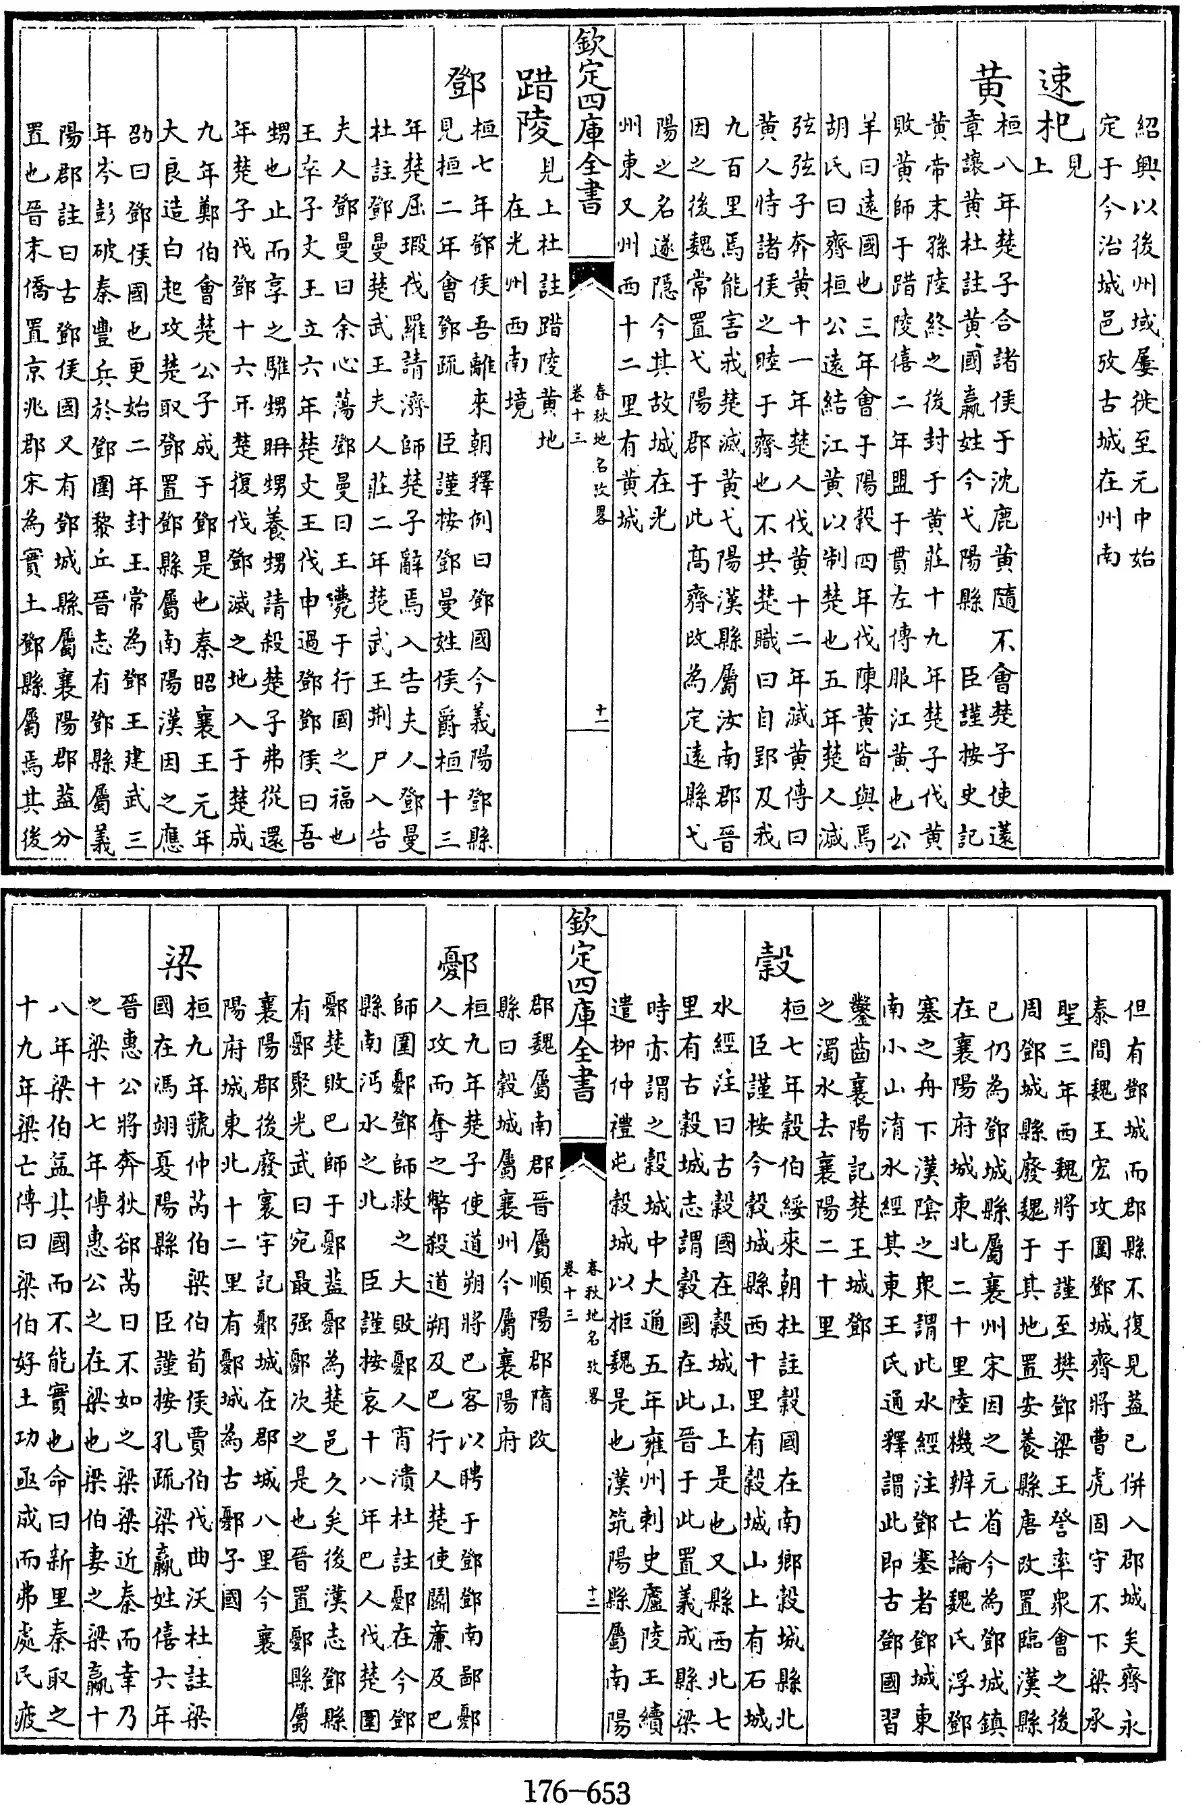 紹興以後州域屢徙至元中始
定于今治城邑攷古城在州南
速杞見
上
黄桓八年楚子合諸侯于沈鹿黄隨不會楚子使薳
章讓黄杜註黄國嬴姓今弋陽縣 臣謹按史記
黄帝末孫陸終之後封于黄莊十九年楚子伐黄
敗黄師于踖陵僖二年盟于貫左傳服江黄也公
羊曰遠國也三年會于陽穀四年伐陳黄皆與焉
胡氏曰齊桓公遠結江黄以制楚也五年楚人滅
弦弦子奔黄十一年楚人伐黄十二年滅黄傳曰
黄人恃諸侯之睦于齊也不共楚職曰自郢及我
九百里焉能害我楚滅黄弋陽漢縣屬汝南郡晉
因之後魏常置弋陽郡于此高齊改為定遠縣弋
陽之名遂隱今其故城在光
州東又州西十二里有黄城
欽定四庫全書
春秋地名攷畧
卷十三
十一
踖陵見上杜註踖陵黄地
在光州西南境
鄧桓七年鄧侯吾離來朝釋例曰鄧國今義陽鄧縣
見桓二年會鄧疏 臣謹按鄧曼姓侯爵桓十三
年楚屈瑕伐羅請濟師楚子辭焉入告夫人鄧曼
杜註鄧曼楚武王夫人莊二年楚武王荆尸入告
夫人鄧曼曰余心蕩鄧曼曰王薨于行國之福也
王卒子文王立六年楚文王伐申過鄧鄧侯曰吾
甥也止而享之騅甥聃甥養甥請殺楚子弗從還
年楚子伐鄧十六年楚復伐鄧滅之地入于楚成
九年鄭伯會楚公子成于鄧是也秦昭襄王元年
大良造白起攻楚取鄧置鄧縣屬南陽漢因之應
劭曰鄧侯國也更始二年封王常為鄧王建武三
年岑彭破秦豐兵於鄧圍黎丘晉志有鄧縣屬義
陽郡註曰古鄧侯國又有鄧城縣屬襄陽郡葢分
置也晉末僑置京兆郡宋為實土鄧縣屬焉其後
但有鄧城而郡縣不復見葢已併入郡城矣齊永
泰間魏王宏攻圍鄧城齊將曹虎固守不下梁承
聖三年西魏將于謹至樊鄧梁王詧率衆會之後
周鄧城縣廢魏于其地置安養縣唐改置臨漢縣
已仍為鄧城縣屬襄州宋因之元省今為鄧城鎮
在襄陽府城東北二十里陸機辨亡論魏氏浮鄧
塞之舟下漢陰之衆謂此水經注鄧塞者鄧城東
南小山淯水經其東王氏通釋謂此即古鄧國習
鑿齒襄陽記楚王城鄧
之濁水去襄陽二十里
穀桓七年穀伯綏來朝杜註穀國在南鄉穀城縣北
臣謹按今穀城縣西十里有穀城山上有石城
水經注曰古穀國在穀城山上是也又縣西北七
里有古穀城志謂穀國在此晉于此置義成縣梁
時亦謂之穀城中大通五年雍州刺史廬陵王續
遣柳仲禮屯穀城以拒魏是也漢筑陽縣屬南陽
欽定四庫全書
春秋地名攷畧
卷十三
十二
郡魏屬南郡晉屬順陽郡隋改
縣曰穀城屬襄州今屬襄陽府
鄾桓九年楚子使道朔將巴客以聘于鄧鄧南鄙鄾
人攻而奪之幣殺道朔及巴行人楚使鬭廉及巴
師圍鄾鄧師救之大敗鄾人宵潰杜註鄾在今鄧
縣南沔水之北 臣謹按哀十八年巴人伐楚圍
鄾楚敗巴師于鄾葢鄾為楚邑久矣後漢志鄧縣
有鄾聚光武曰宛最强鄾次之是也晉置鄾縣屬
襄陽郡後廢寰宇記鄾城在郡城八里今襄
陽府城東北十二里有鄾城為古鄾子國
梁桓九年虢仲芮伯梁伯荀侯賈伯伐曲沃杜註梁
國在馮翊夏陽縣 臣謹按孔疏梁嬴姓僖六年
晉惠公將奔狄郤芮曰不如之梁梁近秦而幸乃
之梁十七年傳惠公之在梁也梁伯妻之梁嬴十
八年梁伯益其國而不能實也命曰新里秦取之
十九年梁亡傳曰梁伯好土功亟成而弗處民疲
176-653